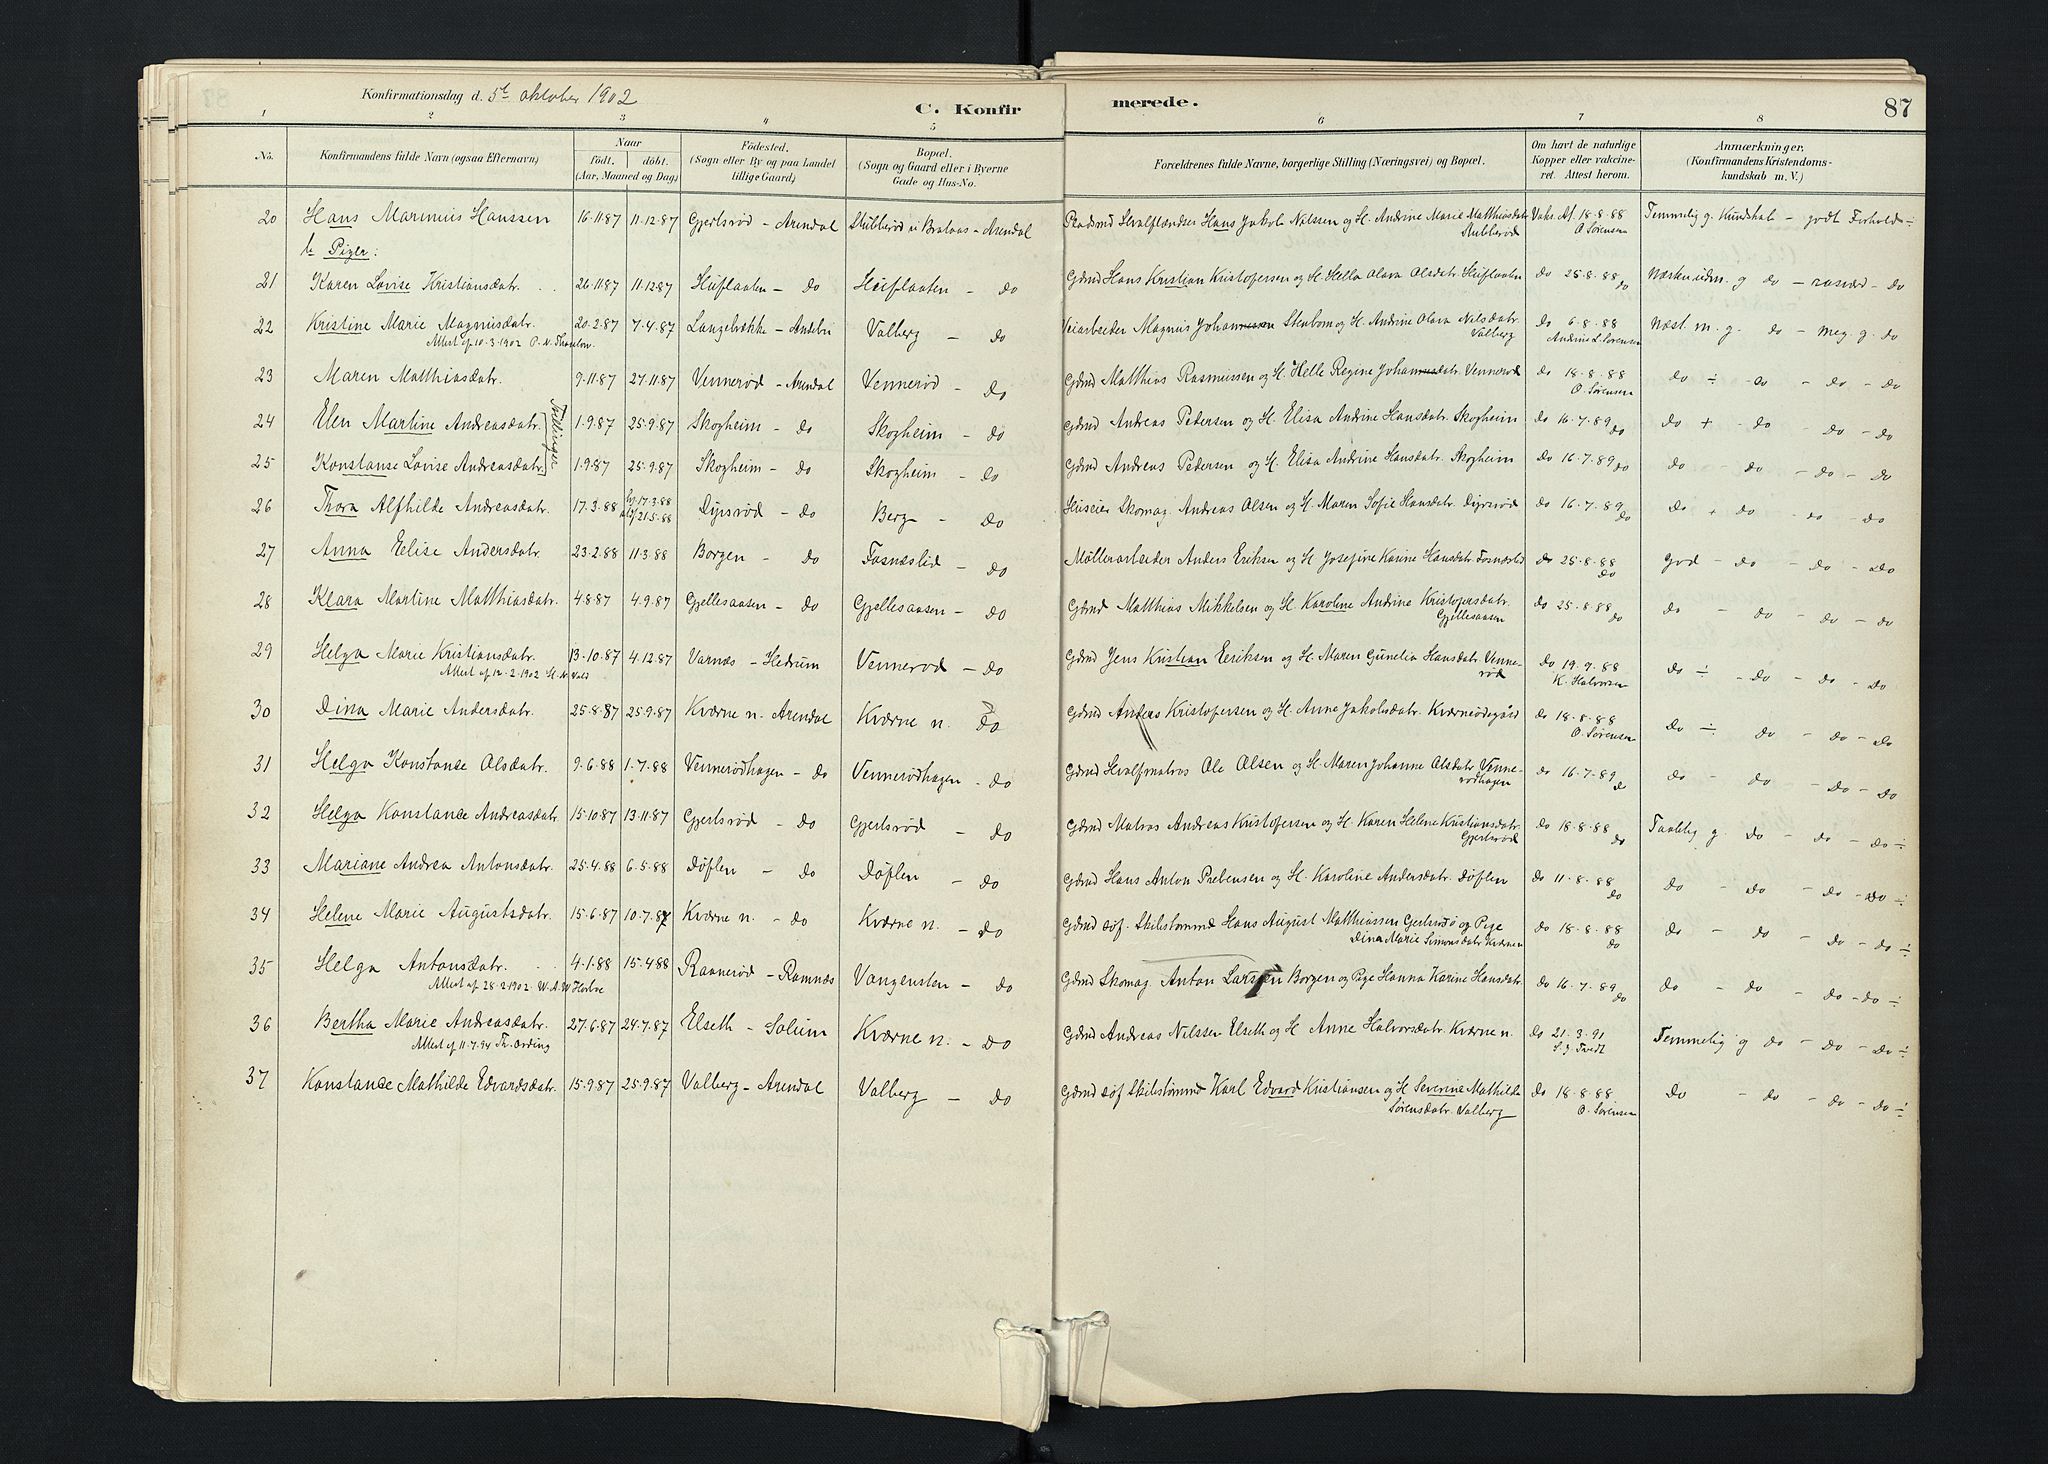 Konfirmationsdag d. 5te oktober 1902
C. Konfirmerede. 87
1 2 3 4 5 6 7 8
No. Konfirmandens fulde Navn (ogsaa Efternavn) Naar födt. döbt. (Aar, Maaned og Dag) Födested. (Sogn eller By og paa Landet tillige Gaard) Bopæl. (Sogn og Gaard eller i Byerne Gade og Hus-No. Forældrenes fulde Navne, borgerlige Stilling (Næringsvei) og Bopæl. Om havt de naturlige Kopper eller vakcineret. Attest herom. Anmærkninger. (Konfirmandens Kristendomskundskab m. V.)
20 Hans Marinius Hanssen 16.11.87 11.12.87 Gjertsrød – Arendal Stubberød – Arendal Hans Jakob Nilssen og H. Andrine Marie Matthiasdatr Stubberød Vaks. At. 18.8.88 O. Sørensen Temmelig g. Kundskab – godt Forhold ÷
b Piger:
21 Karen Lovise Kristiansdatr. 26.11.87 11.12.87 Huflaaten – do Huflaaten – do Gdmd Hans Kristian Kristofersen og H. Hella Olava Olsdatr. Huflaaten do 25.8.88 do Næsten udm. g do – do
22 Kristine Marie Magnusdatr. 20.2.87 7.4.87 Langebrække – Andebu Valberg – do Veiarbeider Magnus Johannessen Stenbom og H. Andrine Olava Nilsdatr. Valberg do 6.8.88 Andrine L. Sørensen Næst. m. g. do – meg. g. do
Attest af 10.3.1902 P. N. Thorslow
23 Maren Matthiasdatr. 9.11.87 27.11.87 Vennerød – Arendal Vennerød – do Gdmd Matthias Rasmussen og H. Helle Regine Johannesdatr. Vennerød do 18.8.88 O. Sørensen do ÷ – do – do – do
24 Elen Martine Andreasdatr. Tvillinger 1.9.87 25.9.87 Skogheim – do Skogheim – do Gdmd Andreas Pedersen og H. Elisa Andrine Hansdatr. Skogheim do 16.7.89 do do + – do – do – do
25 Konstanse Lovise Andreasdatr. 1.9.87 25.9.87 Skogheim – do Skogheim – do Gdmd Andreas Pedersen og H. Elisa Andrine Hansdatr. Skogheim do 16.7.89 do do – do – do – do
26 Thora Alfhilde Andreasdatr. 17.3.88 hj. 17.3.88 21.5.88 Dyrsrød – do Berg – do Huseier Skomag. Andreas Olsen og H. Maren Sofie Hansdatr. Dyrsrød do 16.7.89 do do + do – do – do
27 Anna Elise Andersdatr. 23.2.88 11.3.88 Borgen – do Fosnæslid – do Møllerarbeider Anders Eriksen og H. Josefine Karine Hansdatr. Fosnæslid do 25.8.88 do god – do – do – do
28 Klara Martine Matthiasdatr. 4.8.87 4.9.87 Gjellesaasen – do Gjellesaasen – do Gdmd Matthias Mikkelsen og H. Karoline Andrine Kristofersdatr. Gjellesaasen do 25.8.88 do do – do – do – do
29 Helga Marie Kristiansdatr. 13.10.87 4.12.87 Varnæs – Hedrum Vennerød – do Gdmd Jens Kristian Eriksen og H. Maren Gunelia Hansdatr. Vennerød do 19.7.88 K. Halvorsen do ÷ – do – do – do
Attest af 12.2.1902 H. N. Vold
30 Dina Marie Andersdatr. 25.8.87 25.9.87 Kværne n. Arendal Kværne n. do Gdmd Anders Kristofersen og H. Anne Jakobsdatr. Kværneødegård do 18.8.88 O. Sørensen do ÷ do – do – do
31 Helga Konstance Olsdatr. 9.6.88 1.7.88 Vennerødhagen – do Vennerødhagen – do Gdmd Hvalfmatros Ole Olsen og H. Maren Johanne Olsdatr. Vennerødhagen do 16.7.89 do do – do – do – do
32 Helga Konstance Andreasdatr. 15.10.87 13.11.87 Gjertsrød – do Gjertsrød – do Gdmd Matros Andreas Kristofersen og H. Karen Helene Kristiansdatr. Gjertsrød do 18.8.88 do Taalelig g. do – do – do ÷
33 Mariane Andrea Antonsdatr. 25.4.88 6.5.88 Døflen – do Døflen – do Gdmd Hans Anton Prebensen og H. Karoline Andersdatr. Døflen do 11.8.88 do do – do – do – do ÷
34 Helene Marie Augustsdatr. 15.6.87 10.7.87 Kværne n. – do Kværne n. – do Gdmd søf. Skibstømmd Hans August Matthiassen Gjertsrød og Pige Dina Marie Simonsdatr. Kværnen do 18.8.88 do do – do – do – do ÷
35 Helga Antonsdatr. 4.1.88 15.4.88 Raanerød – Ramnæs Vangensten – do Gdmd Skomag. Anton Larssen Borgen og Pige Hanna Karine Hansdatr. do 16.7.89 do do – do – do – do ÷
Attest af 28.2.1902. W. A. W Horbye
36 Bertha Marie Andreasdatr. 27.6.87 24.7.87 Elseth – Solum Kværne n. – do Gdmd Andreas Nilssen Elseth og H Anne Halvorsdatr. Kværne n. do 21.3.91 S. J. Tvedt Temmelig g do – do – do ÷
Attest af 11.7.94 Th. Ording
37 Konstance Mathilde Edvardsdatr. 15.9.87 25.9.87 Valberg – Arendal Valberg – do Gdmd søf Skibstømmd Karl Edvard Kristiansen og H Severine Mathilde Sørensdatr. Valberg do 18.8.88 O. Sørensen do – do – do – do ÷